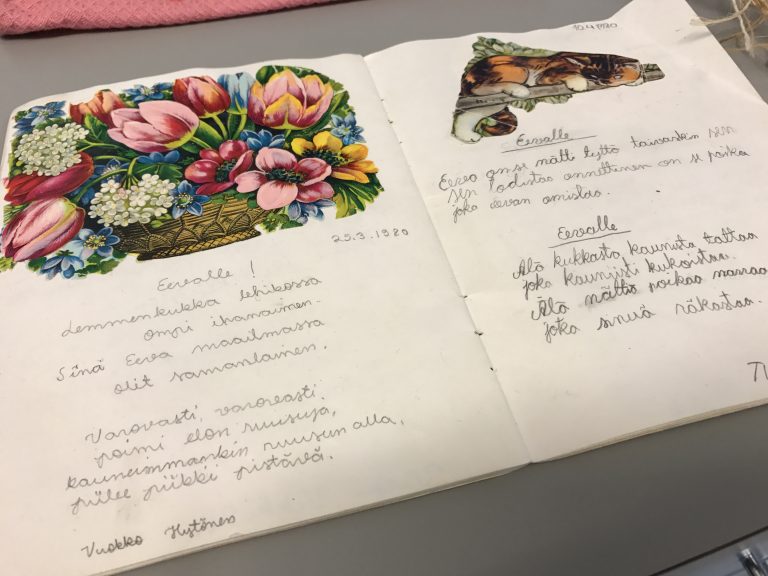 25.3.1980
Eevalle!
Lemmenkukka lehdossa
ompi ihanainen.
Sinä Eeva maailmassa
olit samanlainen.
Varovasti, varovasti
poimi elon ruusuja,
kauneimmankin ruusun alla,
piilee piikki pistävä.
Vuokko Hytönen
10.4.1980
Eevalle
Eeva on se nätti tyttö taivaskin sen
sen todistaa onnellinen on se poika
joka eevan omistaa.
Eevalle
Älä kukkasta kaunista taittaa
joka kauniisti kukoistaa.
Älä nättiä poikaa narraa
joka sinua rakastaa.